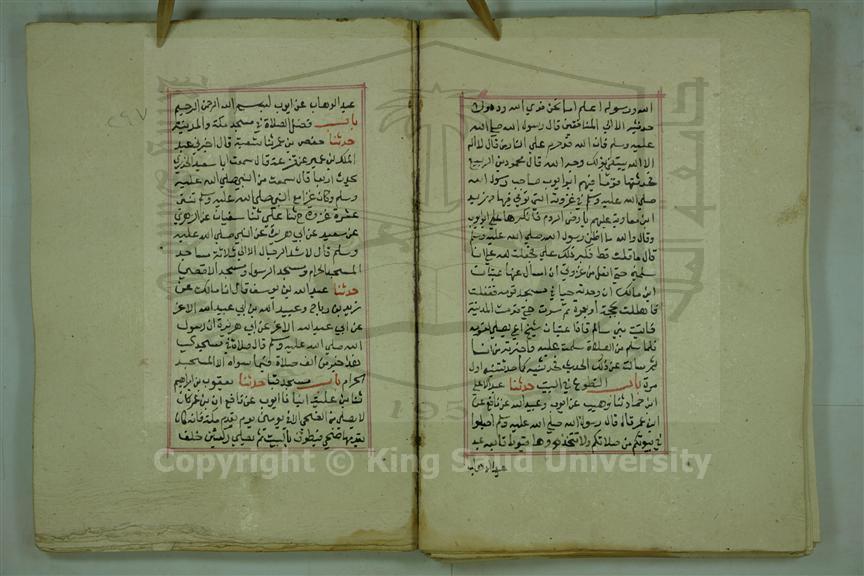 الله ورسوله اعلم اما نحن فوالله لا نرى وده ولا
حديثه الا الى المنافقين قال رسول الله صلى الله
عليه وسلم فان الله قد حرم على النار من قال لا اله
الا الله يبتغي بذلك وجه الله قال محمود بن الربيع
فحدثتها قوما فيهم ابو ايوب صاحب رسول الله
صلى الله عليه وسلم في غزوته التي توفي فيها ويزيد
ابن معاوية عليهم بارض الروم فانكرها علي ابو ايوب
وقال والله ما اظن رسول الله صلى الله عليه وسلم
قال ما قلت قط فكبر ذلك علي فجعلت لله علي ان
سلمني حتى اقفل من غزوتي ان اسأل عنها عتبان
ابن مالك ان وجدته حيا في مسجد قومه فقفلت
فاهللت بحجة او بعمرة ثم سرت حتى قدمت المدينة
فاتيت بني سالم فاذا عتبان شيخ اعمى يصلي لقومه
فلما سلم من الصلاة سلمت عليه واخبرته من انا
ثم سالته عن ذلك الحديث فحدثنيه كما حدثنيه اول
مرة باب التطوع في البيت حدثنا عبد الاعلى
ابن حماد ثنا وهيب عن ايوب وعبيد الله عن نافع عن
ابن عمر قال قال رسول الله صلى الله عليه وسلم اجعلوا
في بيوتكم من صلاتكم ولا تتخذوها قبورا تابعه عبد
عبد الوهاب
عبد الوهاب عن ايوب بسم الله الرحمن الرحيم
باب فضل الصلاة في مسجد مكة والمدينة
حدثنا حفص بن عمر ثنا شعبة قال اخبرني عبد
الملك بن عمير عن قزعة قال سمعت ابا سعيد الخدري
يحدث اربعا قال سمعت من النبي صلى الله عليه
وسلم وكان غزا مع النبي صلى الله عليه وسلم ثنتي
عشرة غزوة ح ثنا علي ثنا سفيان عن الزهري
عن سعيد عن ابي هريرة عن النبي صلى الله عليه
وسلم قال لا تشد الرحال الا الى ثلاثة مساجد
المسجد الحرام ومسجد الرسول ومسجد الاقصى
حدثنا عبد الله بن يوسف قال انا مالك عن
زيد بن رباح وعبيد الله بن ابي عبد الله الاغر
عن ابي عبد الله الاغر عن ابي هريرة ان رسول
الله صلى الله عليه وسلم قال صلاة في مسجدي
هذا خير من الف صلاة فيما سواه الا المسجد
الحرام باب مسجد قبا حدثنا يعقوب بن ابراهيم
ثنا ابن علية انبأ ايوب عن نافع ان ابن عمر كان
لا يصلي من الضحى الا في يومين يوم يقدم مكة فانه كان
يقدمها ضحى فيطوف بالبيت ثم يصلي ركعتين خلف
Copyright © King Saud University
جامعة الملك سعود
195